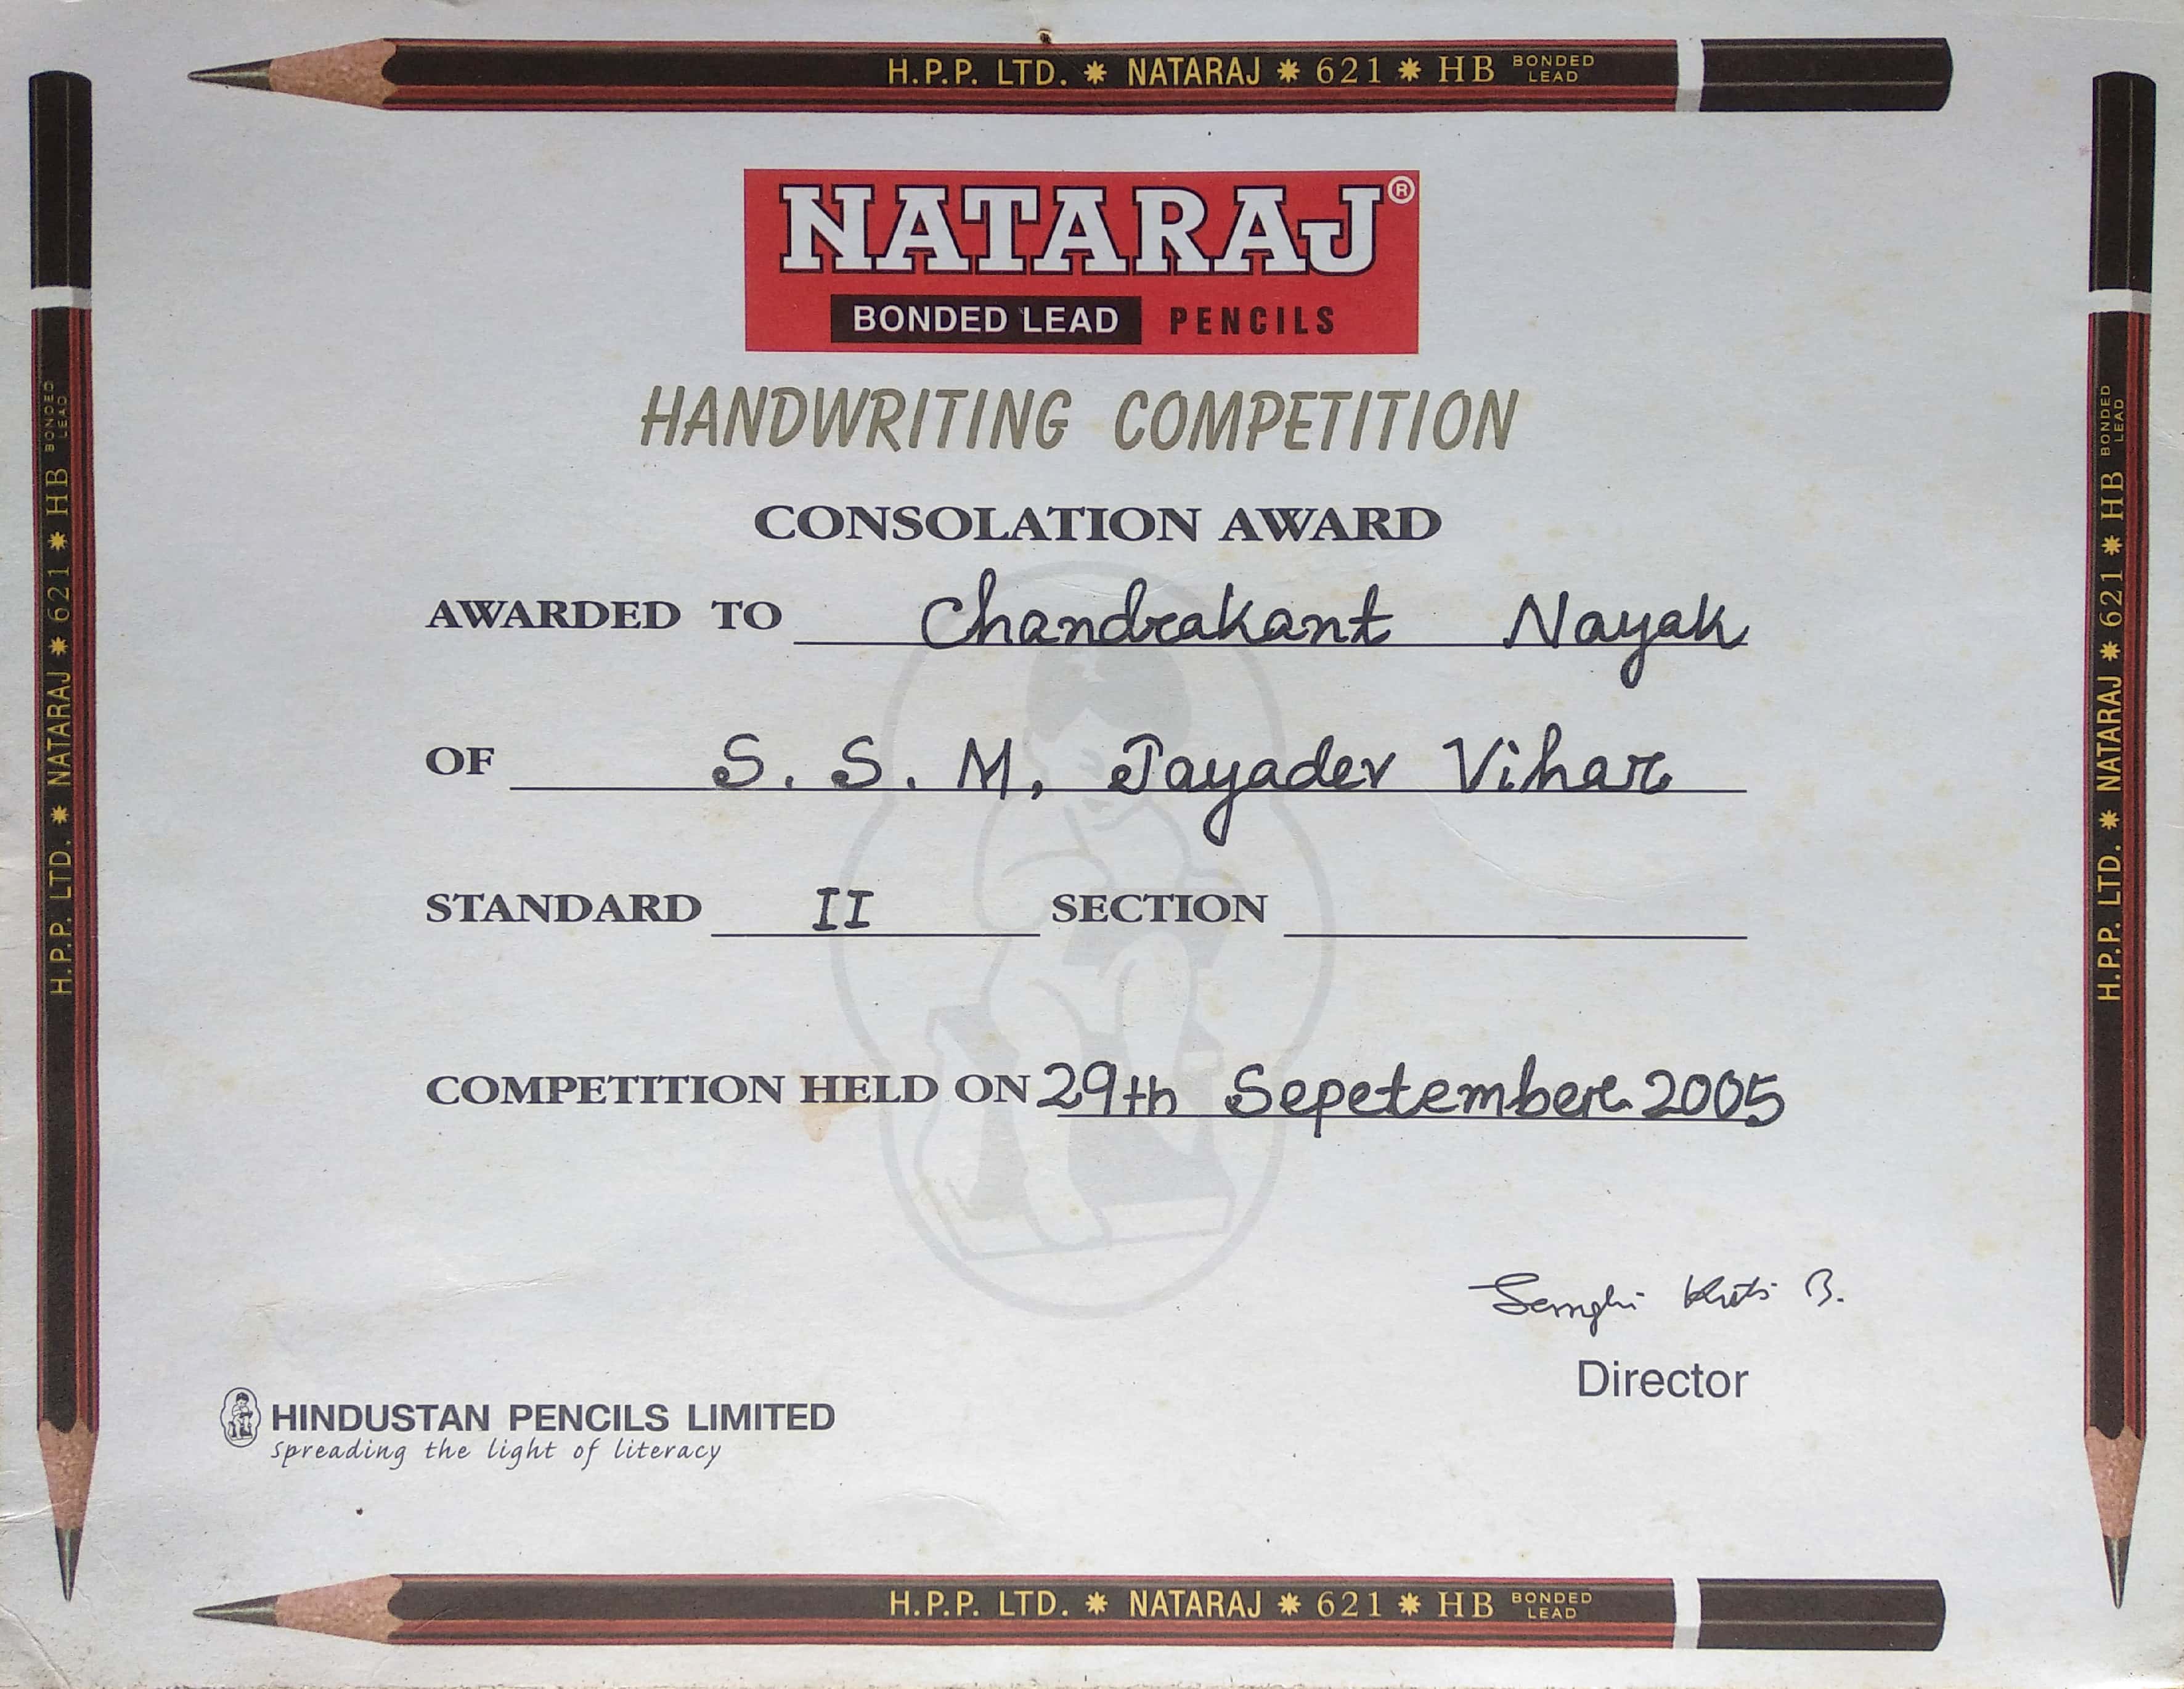 H.P.P. LTD. * NATARAJ * 621 * HB BONDED LEAD
H.P.P. LTD. * NATARAJ * 621 * HB BONDED LEAD
H.P.P. LTD. * NATARAJ * 621 * HB BONDED LEAD
NATARAJ®
BONDED LEAD PENCILS
HANDWRITING COMPETITION
CONSOLATION AWARD
AWARDED TO Chandrakant Nayak
OF S. S. M, Jayadev Vihar
STANDARD II SECTION
COMPETITION HELD ON 29th Sepetember 2005
B.
Director
HINDUSTAN PENCILS LIMITED
Spreading the light of literacy
H.P.P. LTD. * NATARAJ * 621 * HB BONDED LEAD